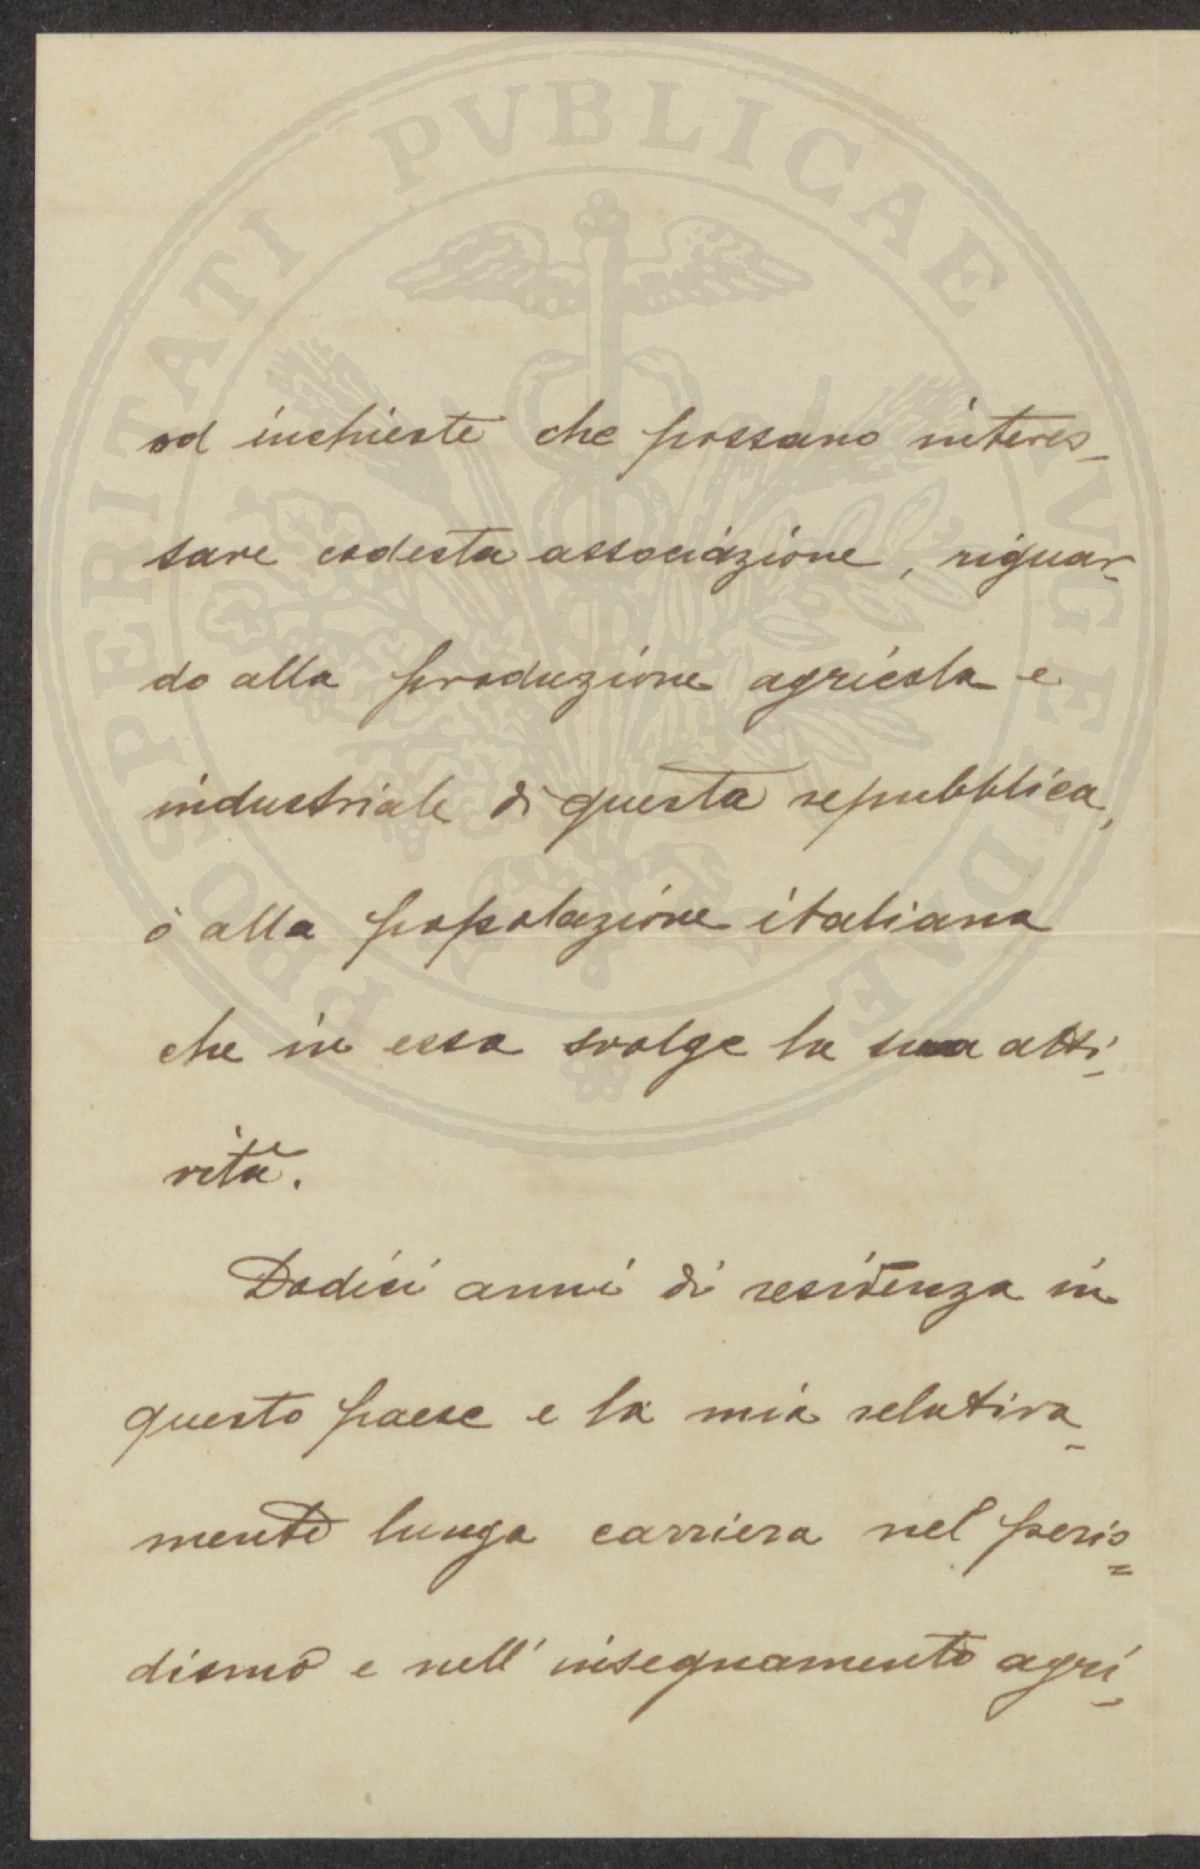 PROSPERITATI PVBLICAE AVGENDAE
od inchieste che possano interes-
sare codesta associazione, riguar-
do alla produzione agricola e
industriale di questa repubblica,
ò alla popolazione italiana
che in essa svolge la sua atti-
vità.
Dodici anni di residenza in
questo paese e la mia relativa-
mente lunga carriera nel perio=
dismo e nell' insegnamento agri-